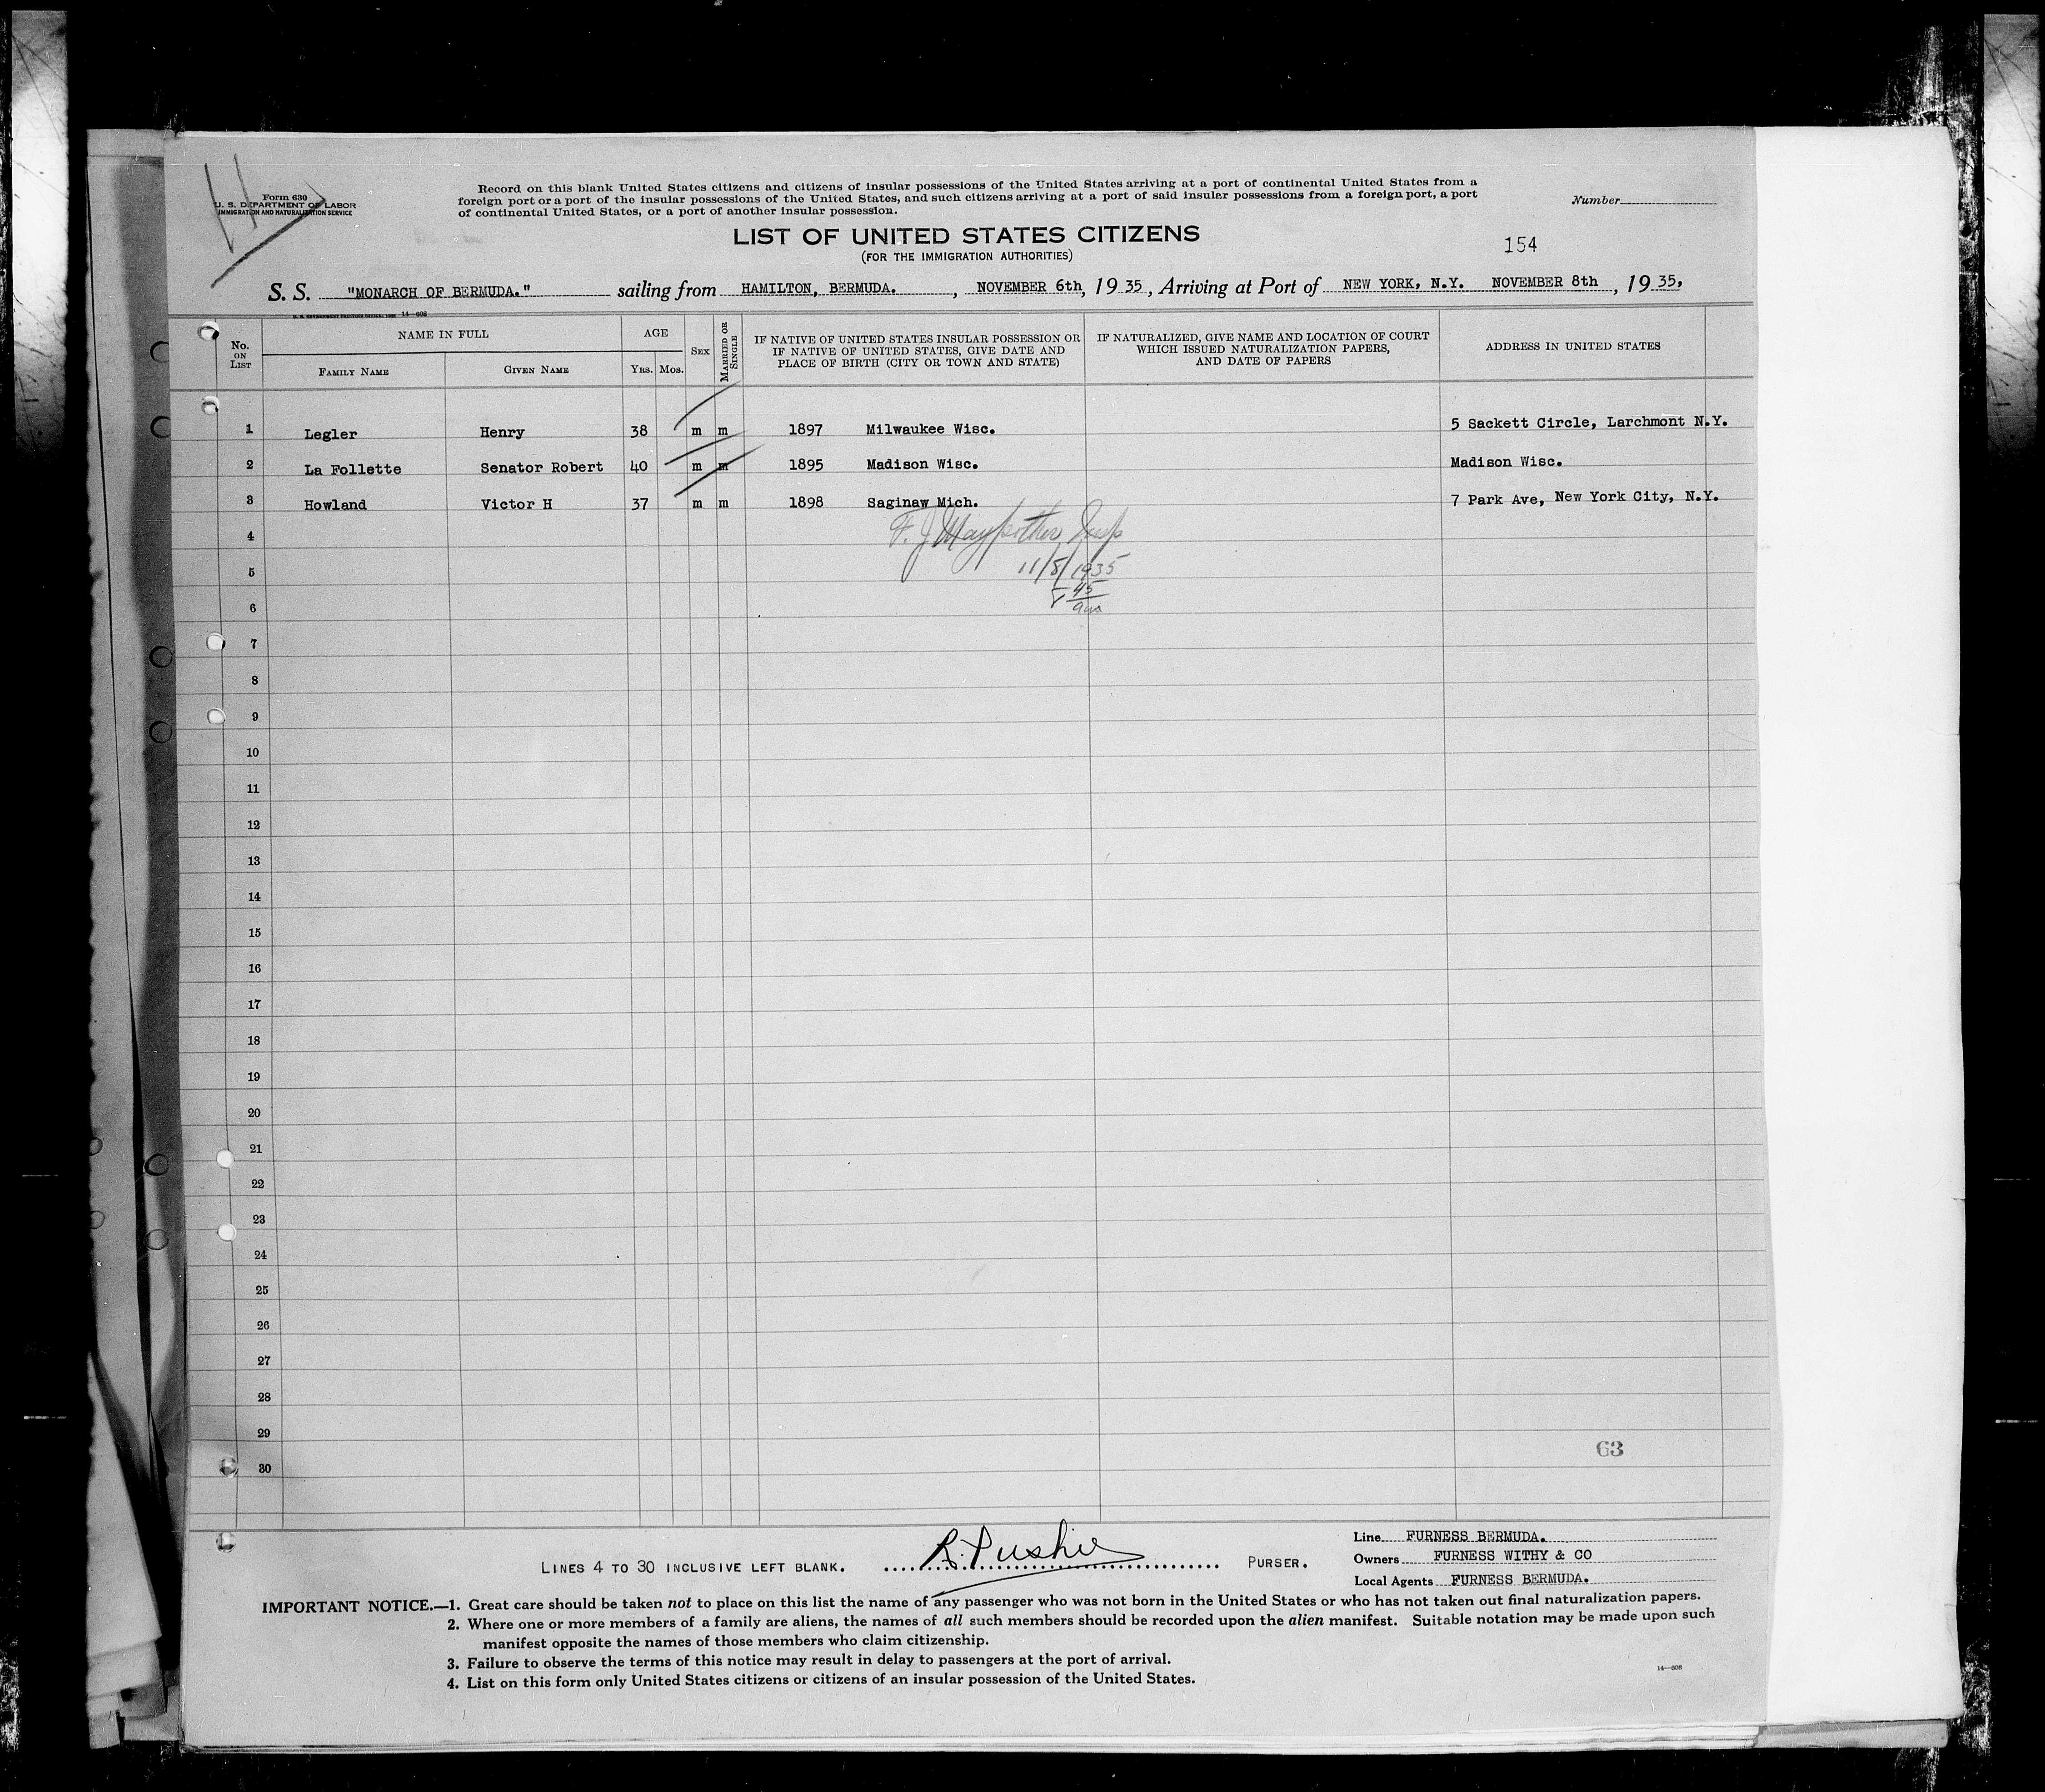 Form 630
U. S. DEPARTMENT OF LABOR
IMMIGRATION AND NATURALIZATION SERVICE
Record on this blank United States citizens and citizens of insular possessions of the United States arriving at a port of continental United States from a
foreign port or a port of the insular possessions of the United States, and such citizens arriving at a port of said insular possessions from a foreign port, a port
of continental United States, or a port of another insular possession.
Number
LIST OF UNITED STATES CITIZENS
(FOR THE IMMIGRATION AUTHORITIES)
154
S. S. "MONARCH OF BERMUDA." sailing from HAMILTON, BERMUDA. , NOVEMBER 6th, 1935, Arriving at Port of NEW YORK, N.Y. NOVEMBER 8th , 1935,
U. S. GOVERNMENT PRINTING OFFICE: 14—608
No. ON LIST NAME IN FULL AGE SEX MARRIED OR SINGLE IF NATIVE OF UNITED STATES INSULAR POSSESSION OR IF NATIVE OF UNITED STATES, GIVE DATE AND PLACE OF BIRTH (CITY OR TOWN AND STATE) IF NATURALIZED, GIVE NAME AND LOCATION OF COURT WHICH ISSUED NATURALIZATION PAPERS, AND DATE OF PAPERS ADDRESS IN UNITED STATES
FAMILY NAME GIVEN NAME YRS. MOS.
1 Legler Henry 38 m m 1897 Milwaukee Wisc. 5 Sackett Circle, Larchmont N.Y.
2 La Follette Senator Robert 40 m m 1895 Madison Wisc. Madison Wisc.
3 Howland Victor H 37 m m 1898 Saginaw Mich. 7 Park Ave, New York City, N.Y.
4 F. J.
5 11/8/1935
6 45
7
8
9
10
11
12
13
14
15
16
17
18
19
20
21
22
23
24
25
26
27
28
29
63
30
LINES 4 TO 30 INCLUSIVE LEFT BLANK. PURSER.
Line FURNESS BERMUDA.
Owners FURNESS WITHY & CO
Local Agents FURNESS BERMUDA.
IMPORTANT NOTICE.—1. Great care should be taken not to place on this list the name of any passenger who was not born in the United States or who has not taken out final naturalization papers.
2. Where one or more members of a family are aliens, the names of all such members should be recorded upon the alien manifest. Suitable notation may be made upon such
manifest opposite the names of those members who claim citizenship.
3. Failure to observe the terms of this notice may result in delay to passengers at the port of arrival.
4. List on this form only United States citizens or citizens of an insular possession of the United States.
14—608